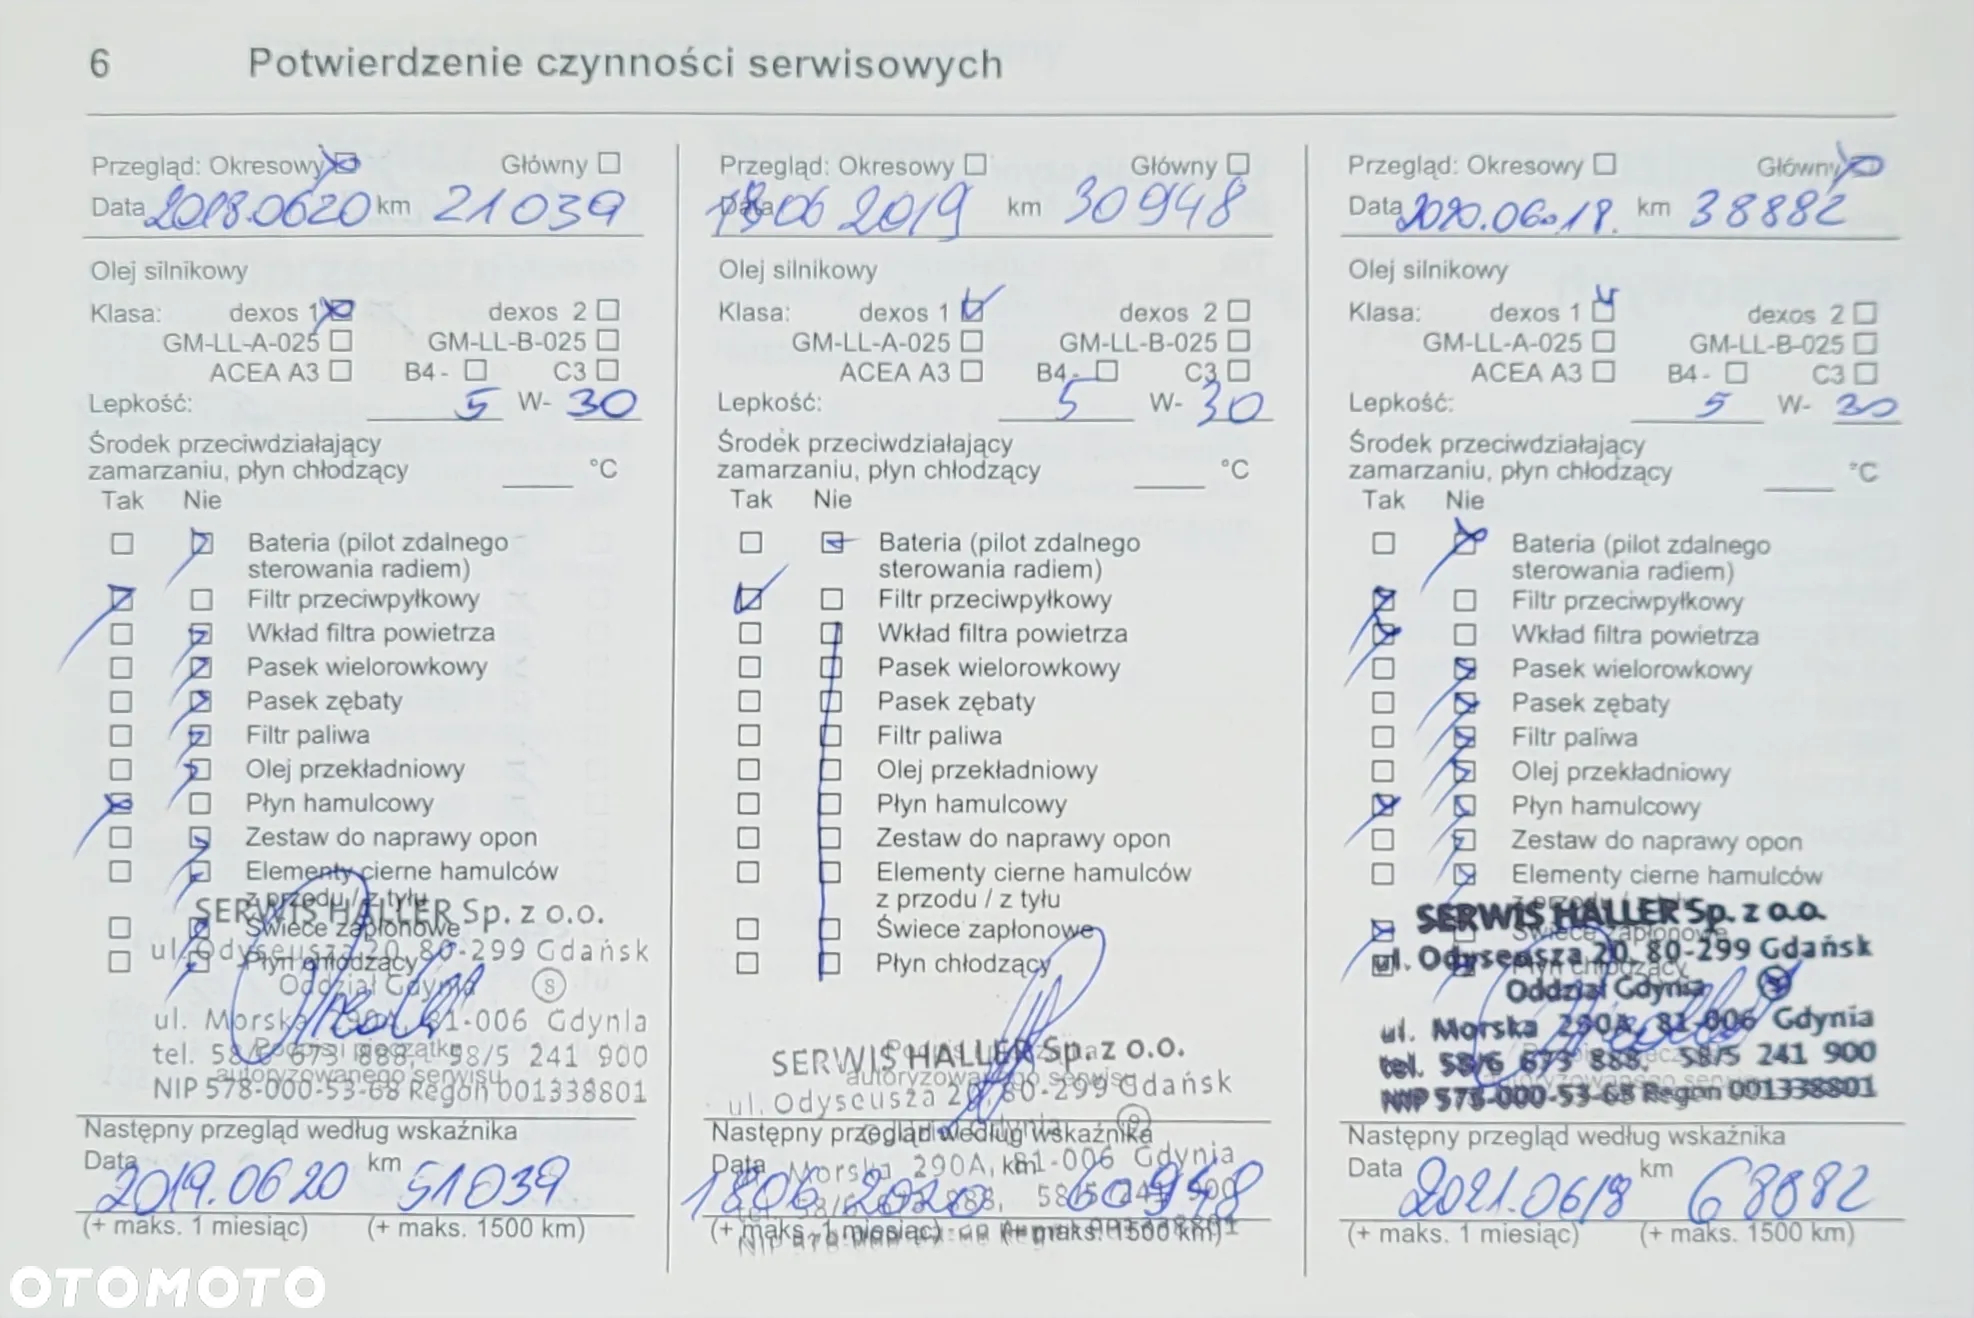 6 Potwierdzenie czynności serwisowych
Przegląd: Okresowy Główny
Data 2018.06 20 km 21039
Olej silnikowy
Klasa: dexos 1 dexos 2
GM-LL-A-025 GM-LL-B-025
ACEA A3 B4 - C3
Lepkość: 5 W- 30
Środek przeciwdziałający
zamarzaniu, płyn chłodzący °C
Tak Nie
Bateria (pilot zdalnego
sterowania radiem)
Filtr przeciwpyłkowy
Wkład filtra powietrza
Pasek wielorowkowy
Pasek zębaty
Filtr paliwa
Olej przekładniowy
Płyn hamulcowy
Zestaw do naprawy opon
Elementy cierne hamulców
z przodu / z tyłu
Świece zapłonowe
Płyn chłodzący
SERWIS HALLER Sp. z o.o.
ul. Odyseusza 20, 80-299 Gdańsk
Oddział Gdynia 8
ul. Morska 290A, 81-006 Gdynia
tel. 58/6 673 888, 58/5 241 900
NIP 578-000-53-68 Regon 001338801
Podpis i pieczątka
autoryzowanego serwisu
Następny przegląd według wskaźnika
Data 2019.06 20 km 51039
(+ maks. 1 miesiąc) (+ maks. 1500 km)
Przegląd: Okresowy Główny
Data 06 2019 km 30948
Olej silnikowy
Klasa: dexos 1 dexos 2
GM-LL-A-025 GM-LL-B-025
ACEA A3 B4 - C3
Lepkość: 5 W- 30
Środek przeciwdziałający
zamarzaniu, płyn chłodzący °C
Tak Nie
Bateria (pilot zdalnego
sterowania radiem)
Filtr przeciwpyłkowy
Wkład filtra powietrza
Pasek wielorowkowy
Pasek zębaty
Filtr paliwa
Olej przekładniowy
Płyn hamulcowy
Zestaw do naprawy opon
Elementy cierne hamulców
z przodu / z tyłu
Świece zapłonowe
Płyn chłodzący
SERWIS HALLER Sp. z o.o.
autoryzowanego serwisu
ul. Odyseusza 20, 80-299 Gdańsk
Następny przegląd według wskaźnika
Morska 290A, 81-006 Gdynia
Data 18 06 2020 km 60948
(+ maks. 1 miesiąc) (+ maks. 1500 km)
Przegląd: Okresowy Główny
Data 2020.06.18. km 38882
Olej silnikowy
Klasa: dexos 1 dexos 2
GM-LL-A-025 GM-LL-B-025
ACEA A3 B4 - C3
Lepkość: 5 W- 30
Środek przeciwdziałający
zamarzaniu, płyn chłodzący °C
Tak Nie
Bateria (pilot zdalnego
sterowania radiem)
Filtr przeciwpyłkowy
Wkład filtra powietrza
Pasek wielorowkowy
Pasek zębaty
Filtr paliwa
Olej przekładniowy
Płyn hamulcowy
Zestaw do naprawy opon
Elementy cierne hamulców
z przodu / z tyłu
Świece zapłonowe
Płyn chłodzący
SERWIS HALLER Sp. z o.o.
ul. Odyseusza 20, 80-299 Gdańsk
Oddział Gdynia
ul. Morska 290A, 81-006 Gdynia
tel. 58/6 673 888, 58/5 241 900
NIP 578-000-53-68 Regon 001338801
Następny przegląd według wskaźnika
Data 2021.06 18 km 68882
(+ maks. 1 miesiąc) (+ maks. 1500 km)
OTOMOTO